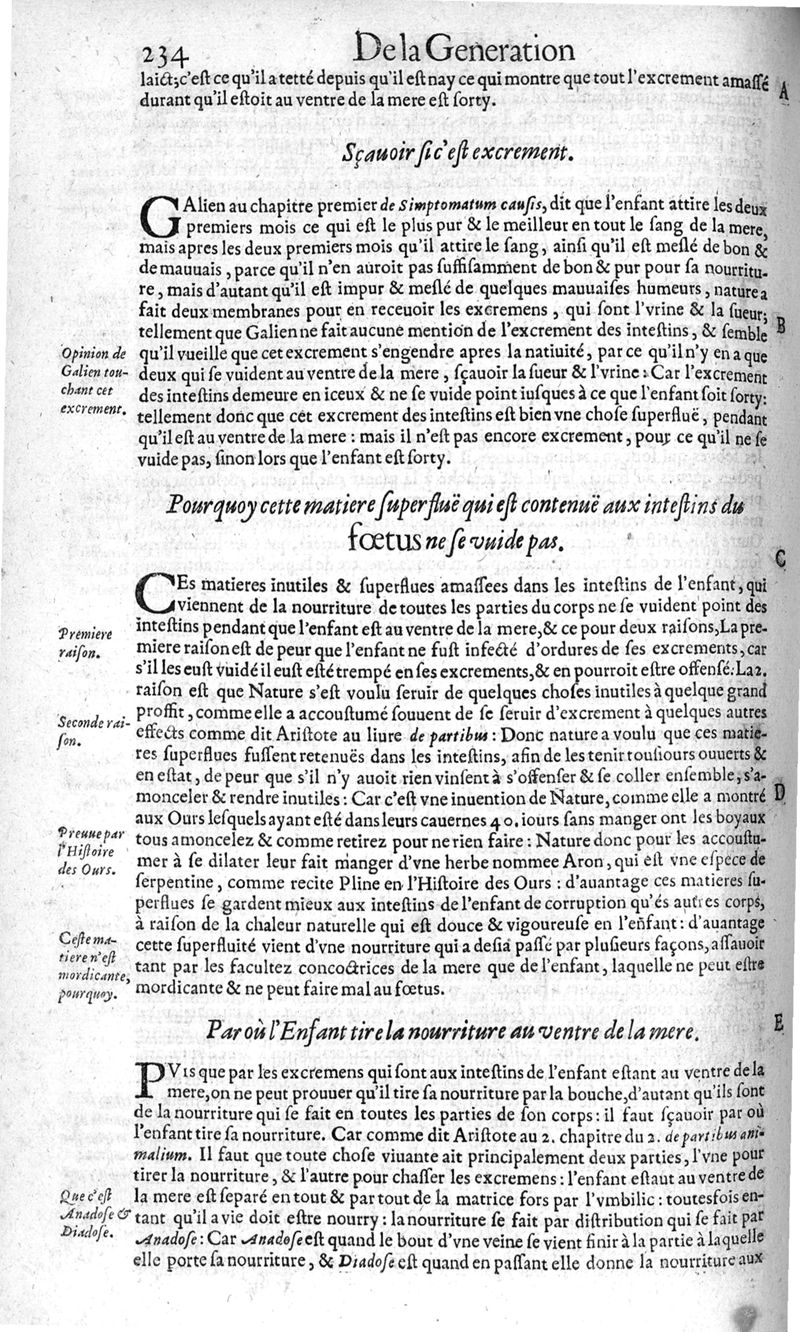 234 De la Generation
laict; c'est ce qu'il a tetté depuis qu'il est nay ce qui montre que tout l'excrement amassé
durant qu'il estoit au ventre de la mere est sorty.
A
Sçauoir si c'est excrement.
GAlien au chapitre premier de Simptomatum causis, dit que l'enfant attire les deux
premiers mois ce qui est le plus pur & le meilleur en tout le sang de la mere,
mais apres les deux premiers mois qu'il attire le sang, ainsi qu'il est meslé de bon &
de mauuais, parce qu'il n'en auroit pas suffisamment de bon & pur pour sa nourritu-
re, mais d'autant qu'il est impur & meslé de quelques mauuaises humeurs, nature a
fait deux membranes pour en receuoir les excremens, qui sont l'vrine & la sueur;
B
tellement que Galien ne fait aucune mention de l'excrement des intestins, & semble
qu'il vueille que cet excrement s'engendre apres la natiuité, par ce qu'il n'y en a que
deux qui se vuident au ventre de la mere, sçauoir la sueur & l'vrine: Car l'excrement
des intestins demeure en iceux & ne se vuide point iusques à ce que l'enfant soit sorty:
tellement donc que cet excrement des intestins est bien vne chose superfluë, pendant
qu'il est au ventre de la mere: mais il n'est pas encore excrement, pour ce qu'il ne se
vuide pas, sinon lors que l'enfant est sorty.
Opinion de
Galien tou-
chant cet
excrement.
Pourquoy cette matiere superfluë qui est contenuë aux intestins du
fœtus ne se vuide pas.
C
CEs matieres inutiles & superflues amassees dans les intestins de l'enfant, qui
viennent de la nourriture de toutes les parties du corps ne se vuident point des
intestins pendant que l'enfant est au ventre de la mere, & ce pour deux raisons, La pre-
miere raison est de peur que l'enfant ne fust infecté d'ordures de ses excrements, car
s'il les eust vuidé il eust esté trempé en ses excrements, & en pourroit estre offensé. La 2.
raison est que Nature s'est voulu seruir de quelques choses inutiles à quelque grand
proffit, comme elle a accoustumé souuent de se seruir d'excrement à quelques autres
effects comme dit Aristote au liure de partibus: Donc nature a voulu que ces matie-
res superflues fussent retenuës dans les intestins, afin de les tenir tousiours ouuerts &
en estat, de peur que s'il n'y auoit rien vinsent à s'offenser & se coller ensemble, s'a-
monceler & rendre inutiles: Car c'est vne inuention de Nature, comme elle a montré
D
aux Ours lesquels ayant esté dans leurs cauernes 40. iours sans manger ont les boyaux
tous amoncelez & comme retirez pour ne rien faire: Nature donc pour les accoustu-
mer à se dilater leur fait manger d'vne herbe nommee Aron, qui est vne espece de
serpentine, comme recite Pline en l'Histoire des Ours: d'auantage ces matieres su-
perflues se gardent mieux aux intestins de l'enfant de corruption qu'és autres corps,
à raison de la chaleur naturelle qui est douce & vigoureuse en l'enfant: d'auantage
cette superfluité vient d'vne nourriture qui a desia passé par plusieurs façons, assauoir
tant par les facultez concoctrices de la mere que de l'enfant, laquelle ne peut estre
mordicante & ne peut faire mal au fœtus.
Premiere
raison.
Seconde rai-
son.
Preuue par
l'Histoire
des Ours.
Ceste ma-
tiere n'est
mordicante,
pourquoy.
E
Par où l'Enfant tire la nourriture au ventre de la mere.
PVis que par les excremens qui sont aux intestins de l'enfant estant au ventre de la
mere, on ne peut prouuer qu'il tire sa nourriture par la bouche, d'autant qu'ils sont
de la nourriture qui se fait en toutes les parties de son corps: il faut sçauoir par où
l'enfant tire sa nourriture. Car comme dit Aristote au 2. chapitre du 2. de partibus ani-
malium. Il faut que toute chose viuante ait principalement deux parties, l'vne pour
tirer la nourriture, & l'autre pour chasser les excremens: l'enfant estaut au ventre de
la mere est separé en tout & par tout de la matrice fors par l'vmbilic: toutesfois en-
tant qu'il a vie doit estre nourry: la nourriture se fait par distribution qui se fait par
Anadose: Car Anadose est quand le bout d'vne veine se vient finir à la partie à laquelle
elle porte sa nourriture, & Diadose est quand en passant elle donne la nourriture aux
Que c'est
Anadose &
Diadose.